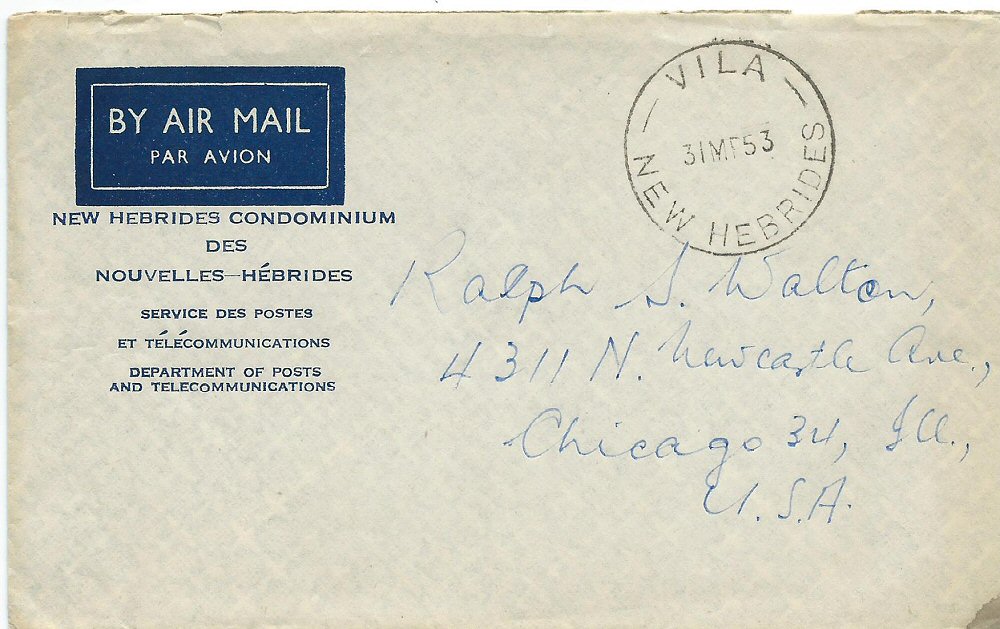 BY AIR MAIL
PAR AVION
NEW HEBRIDES CONDOMINIUM
DES
NOUVELLES-HÉBRIDES
SERVICE DES POSTES
ET TÉLÉCOMMUNICATIONS
DEPARTMENT OF POSTS
AND TELECOMMUNICATIONS
VILA
31 MR 53
NEW HEBRIDES
Ralph S. Walton,
4311 N. Newcastle Ave.,
Chicago 34, Ill.,
U.S.A.